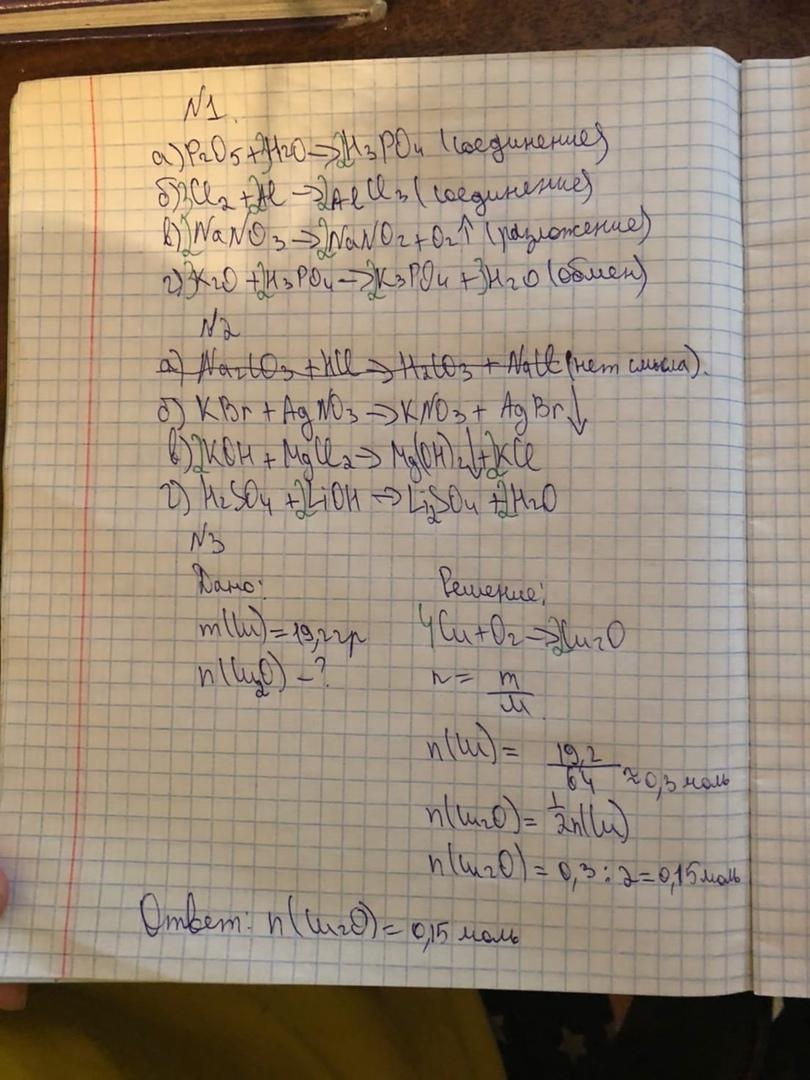 N1.
а) P₂O₅ + 3H₂O → 2H₃PO₄ (соединение)
б) 3Cl₂ + 2Al → 2AlCl₃ (соединение)
в) 2NaNO₃ → 2NaNO₂ + O₂↑ (разложение)
г) 3K₂O + 2H₃PO₄ → 2K₃PO₄ + 3H₂O (обмен)
N2
а) Na₂CO₃ + HCl → H₂CO₃ + NaCl (нет смысла).
б) KBr + AgNO₃ → KNO₃ + AgBr↓
в) 2KOH + MgCl₂ → Mg(OH)₂↓ + 2KCl
г) H₂SO₄ + 2LiOH → Li₂SO₄ + 2H₂O
N3
Дано: Решение:
m(Cu) = 19,2 гр 4Cu + O₂ → 2Cu₂O
n(Cu₂O) – ? n = m/M
n(Cu) = 19,2/64 ≈ 0,3 моль
n(Cu₂O) = 1/2n(Cu)
n(Cu₂O) = 0,3 : 2 = 0,15 моль
Ответ: n(Cu₂O) = 0,15 моль